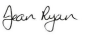 Jean Ryan